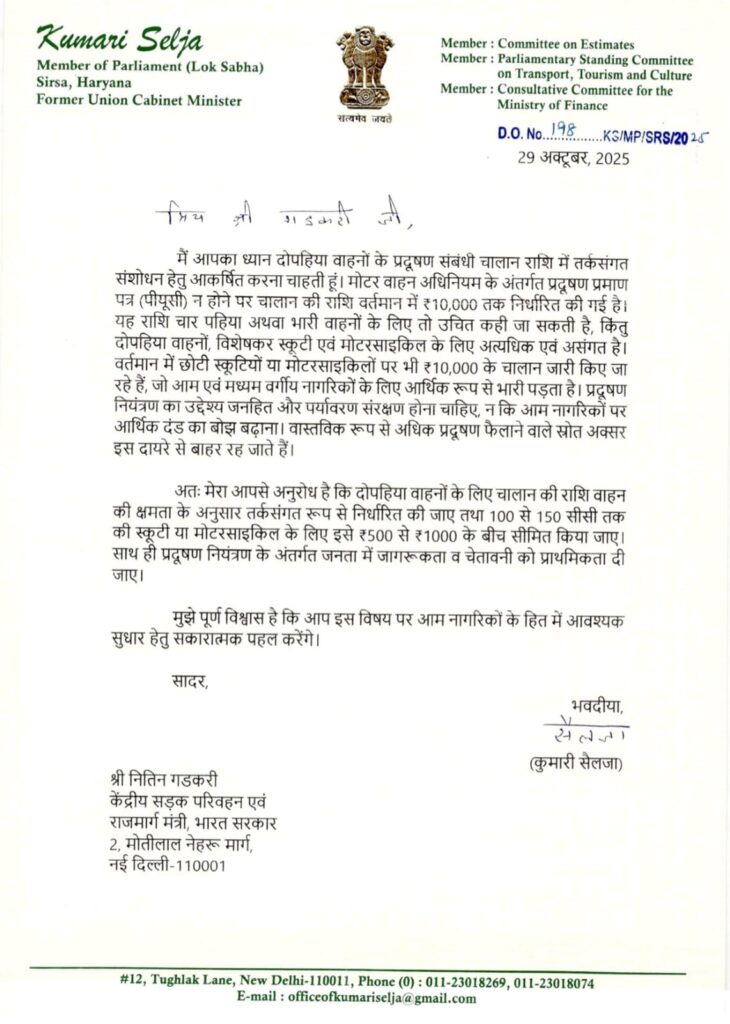 Kumari Selja
Member of Parliament (Lok Sabha)
Sirsa, Haryana
Former Union Cabinet Minister
सत्यमेव जयते
Member : Committee on Estimates
Member : Parliamentary Standing Committee
on Transport, Tourism and Culture
Member : Consultative Committee for the
Ministry of Finance
D.O. No...198......KS/MP/SRS/2025
29 अक्टूबर, 2025
प्रिय श्री गडकरी जी,
मैं आपका ध्यान दोपहिया वाहनों के प्रदूषण संबंधी चालान राशि में तर्कसंगत
संशोधन हेतु आकर्षित करना चाहती हूं। मोटर वाहन अधिनियम के अंतर्गत प्रदूषण प्रमाण
पत्र (पीयूसी) न होने पर चालान की राशि वर्तमान में ₹10,000 तक निर्धारित की गई है।
यह राशि चार पहिया अथवा भारी वाहनों के लिए तो उचित कही जा सकती है, किंतु
दोपहिया वाहनों, विशेषकर स्कूटी एवं मोटरसाइकिल के लिए अत्यधिक एवं असंगत है।
वर्तमान में छोटी स्कूटियों या मोटरसाइकिलों पर भी ₹10,000 के चालान जारी किए जा
रहे हैं, जो आम एवं मध्यम वर्गीय नागरिकों के लिए आर्थिक रूप से भारी पड़ता है। प्रदूषण
नियंत्रण का उद्देश्य जनहित और पर्यावरण संरक्षण होना चाहिए, न कि आम नागरिकों पर
आर्थिक दंड का बोझ बढ़ाना। वास्तविक रूप से अधिक प्रदूषण फैलाने वाले स्रोत अक्सर
इस दायरे से बाहर रह जाते हैं।
अतः मेरा आपसे अनुरोध है कि दोपहिया वाहनों के लिए चालान की राशि वाहन
की क्षमता के अनुसार तर्कसंगत रूप से निर्धारित की जाए तथा 100 से 150 सीसी तक
की स्कूटी या मोटरसाइकिल के लिए इसे ₹500 से ₹1000 के बीच सीमित किया जाए।
साथ ही प्रदूषण नियंत्रण के अंतर्गत जनता में जागरूकता व चेतावनी को प्राथमिकता दी
जाए।
मुझे पूर्ण विश्वास है कि आप इस विषय पर आम नागरिकों के हित में आवश्यक
सुधार हेतु सकारात्मक पहल करेंगे।
सादर,
भवदीया,
सैलजा
(कुमारी सैलजा)
श्री नितिन गडकरी
केंद्रीय सड़क परिवहन एवं
राजमार्ग मंत्री, भारत सरकार
2, मोतीलाल नेहरू मार्ग,
नई दिल्ली-110001
#12, Tughlak Lane, New Delhi-110011, Phone (0) : 011-23018269, 011-23018074
E-mail : officeofkumariselja@gmail.com